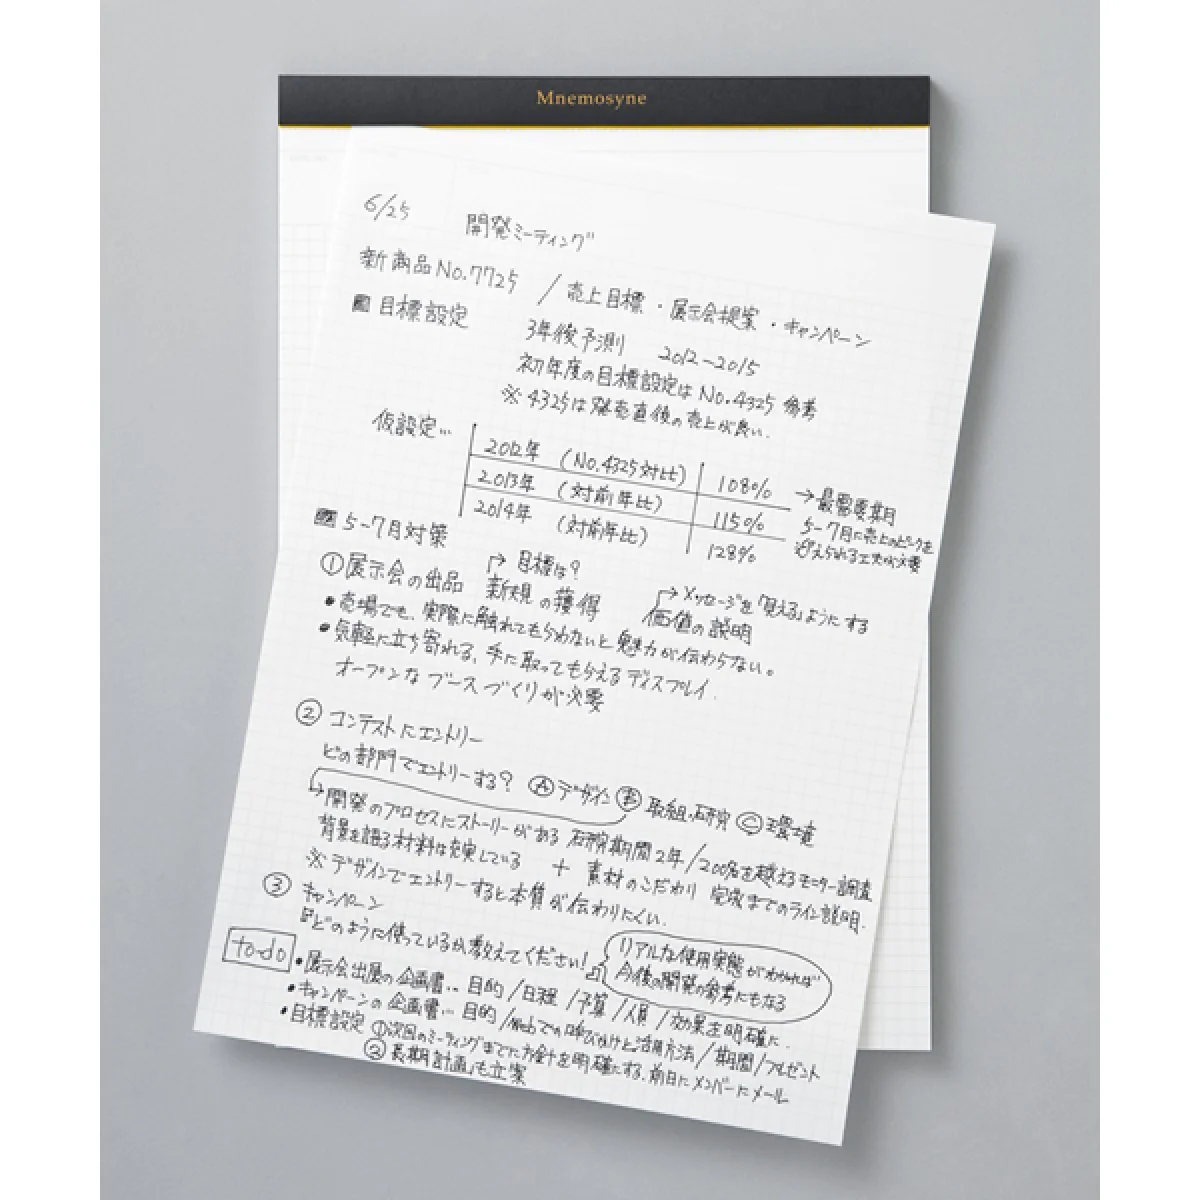 Mnemosyne
6/25 開発ミーティング
新商品No.7725 / 売上目標・展示会提案・キャンペーン
目標設定
3年後予測 2012〜2015
初年度の目標設定はNo.4325参考
※4325は発売直後の売上が良い.
仮設定…
2012年 (No.4325対比) 108%
2013年 (対前年比) 115%
2014年 (対前年比) 128%
→最需要期
5-7月に売上のピークを
迎えられる工夫が必要
5-7月対策
①展示会の出品
→目標は?
新規の獲得
→メッセージを「見える」ようにする
価値の説明
•売場でも、実際に触れてもらわないと魅力が伝わらない。
•気軽に立ち寄れる、手に取ってもらえるディスプレイ.
オープンなブースづくりが必要
②コンテストにエントリー
どの部門でエントリーする? Ⓐデザイン Ⓑ取組・研究 Ⓒ環境
→開発のプロセスにストーリーがある 研究期間2年/200名を越えるモニター調査
背景を語る材料は充実している + 素材のこだわり 完成までのライン説明.
※デザインでエントリーすると本質が伝わりにくい.
③キャンペーン
どのように使っているか教えてください!
リアルな使用実態がわかれば
今後の開発の参考にもなる
to-do
•展示会出展の企画書… 目的/日程/予算/人員/効果を明確に.
•キャンペーンの企画書… 目的/Webでの呼びかけと活用方法/期間/プレゼント
•目標設定 ①次回のミーティングまでに方針を明確にする.前日にメンバーにメール
②長期計画も立案